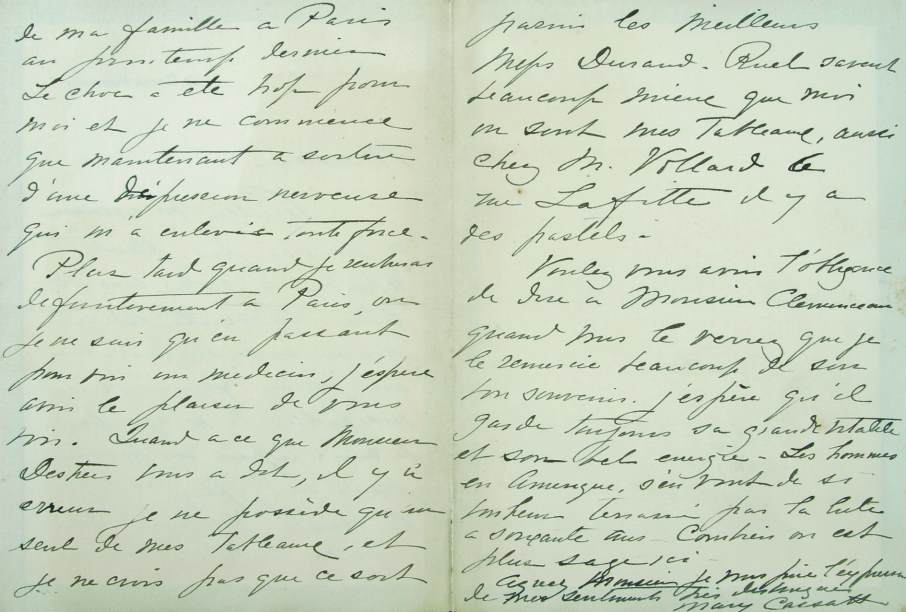 de ma famille a Paris
au printemps dernier
Le choc a ete trop pour
moi et je ne commence
que maintenant a sortir
d'une depression nerveuse
qui m'a enlevée toute force -
Plus tard quand je rentrerai
definitivement a Paris, ou
je ne suis qu'en passant
pour voir un medecin, j'espere
avoir le plaisir de vous
voir. Quand a ce que Monsieur
vous a dit, il y a
erreur je ne possède qu'un
seul de mes Tableaux, et
je ne crois pas que ce soit
parmi les meilleurs
Messrs Durand-Ruel savent
beaucoup mieux que moi
ou sont mes Tableaux, aussi
chez M. Vollard 6
rue Lafitte il y a
des pastels -
Voulez vous avoir l'obligence
de dire a Monsieur Clemenceau
quand vous le verrez que je
le remercie beaucoup de son
bon souvenir. j'espère qu'il
garde toujours sa grande vitalite
et son bel energie - Les hommes
en Amerique, s'en vont de si
bonheur terrassé par la lute
a soixante ans - Combien on est
plus sage ici -
Agreez Monsieur je vous prie l'expression
de mes sentiments très distingués
Mary Cassatt